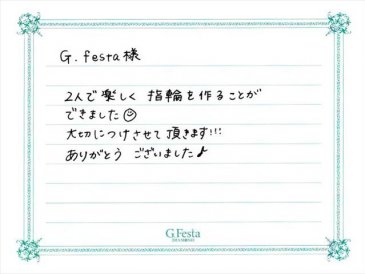 G.festa様
2人で楽しく 指輪を作ることが
できました☺
大切につけさせて頂きます!!!
ありがとう ございました♪
G.Festa